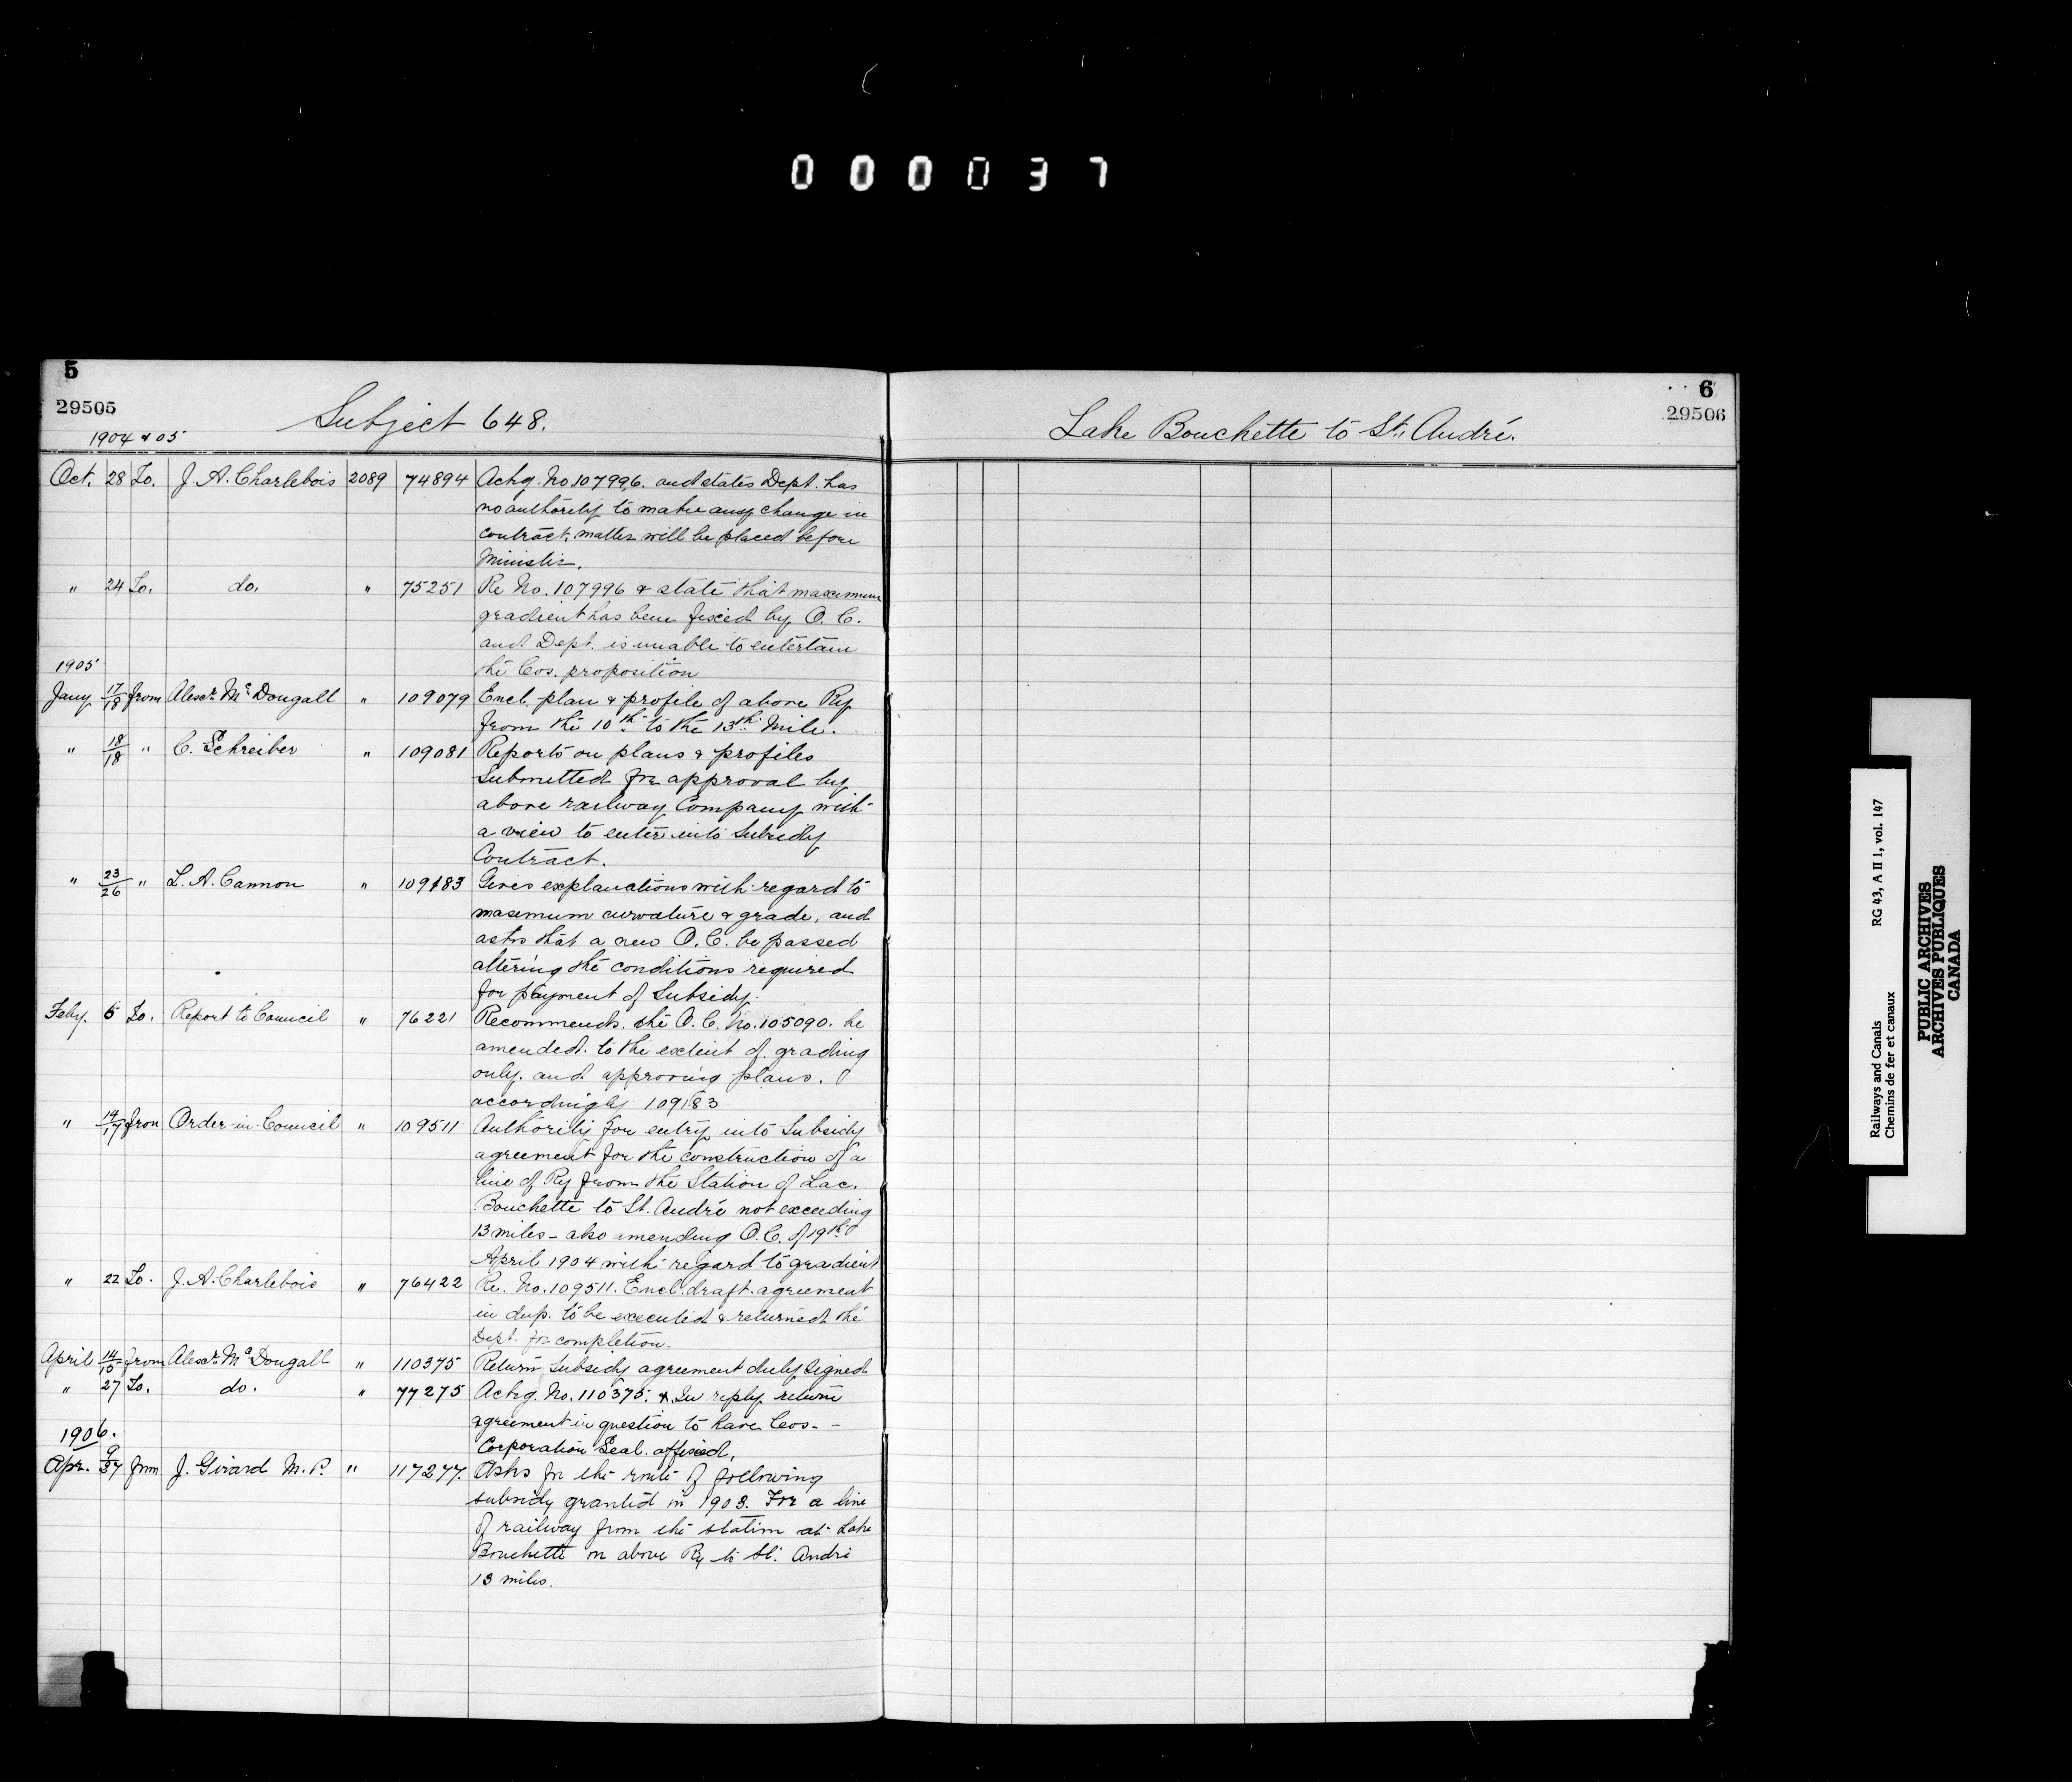 000037
5
29505
Subject 648.
1904 & 05
Oct. 28 To. J. A. Charlebois 2089 74894 Ackg. No 107996. and states Dept. has
no authority to make any change in
contract, matter will be placed before
Minister.
" 24 To. do. " 75251 Re No. 107996 & state that maximum
gradient has been fixed by O. C.
and Dept. is unable to entertain
the Cos. proposition
1905
Jany 17/18 from Alexr. McDougall " 109079 Encl. plan & profile of above Ry
from the 10th to the 13th Mile.
" 18/18 " C. Schreiber " 109081 Reports on plans & profiles
Submitted for approval by
above railway Company with
a view to enter into Subsidy
Contract.
" 23/26 " L. A. Cannon " 109183 Gives explanations with regard to
maximum curvature & grade, and
asks that a new O. C. be passed
altering the conditions required
for payment of Subsidy.
Feby. 6 To. Report to Council " 76221 Recommends. the O. C. No. 105090. be
amended. to the extent of grading
only. and approving plans.
accordingly 109183
" 14/17 from Order-in-Council " 109511 Authority for entry into Subsidy
agreement for the construction of a
line of Ry from the Station of Lac.
Bouchette to St. André not exceeding
13 miles - also amending O. C. of 19th
April 1904 with regard to gradient
" 22 To. J. A. Charlebois " 76422 Re. No. 109511. Encl. draft. agreement
in dup. to be executed & returned the
Dept. for completion.
April 14/15 from Alexr. McDougall " 110375 Return Subsidy agreement duly Signed
" 27 To. do. " 77275 Ackg. No. 110375. & In reply return
agreement in question to have Cos. -
Corporation Seal. affixed,
1906.
Apr. 9/27 from J. Girard M. P. " 117277. Asks for the route of following
subsidy granted in 1903. For a line
of railway from the station at Lake
Bouchette on above Ry to St. André
13 miles.
6
29506
Lake Bouchette to St. André.
Railways and Canals RG 43, A II 1, vol. 147
Chemins de fer et canaux
PUBLIC ARCHIVES
ARCHIVES PUBLIQUES
CANADA